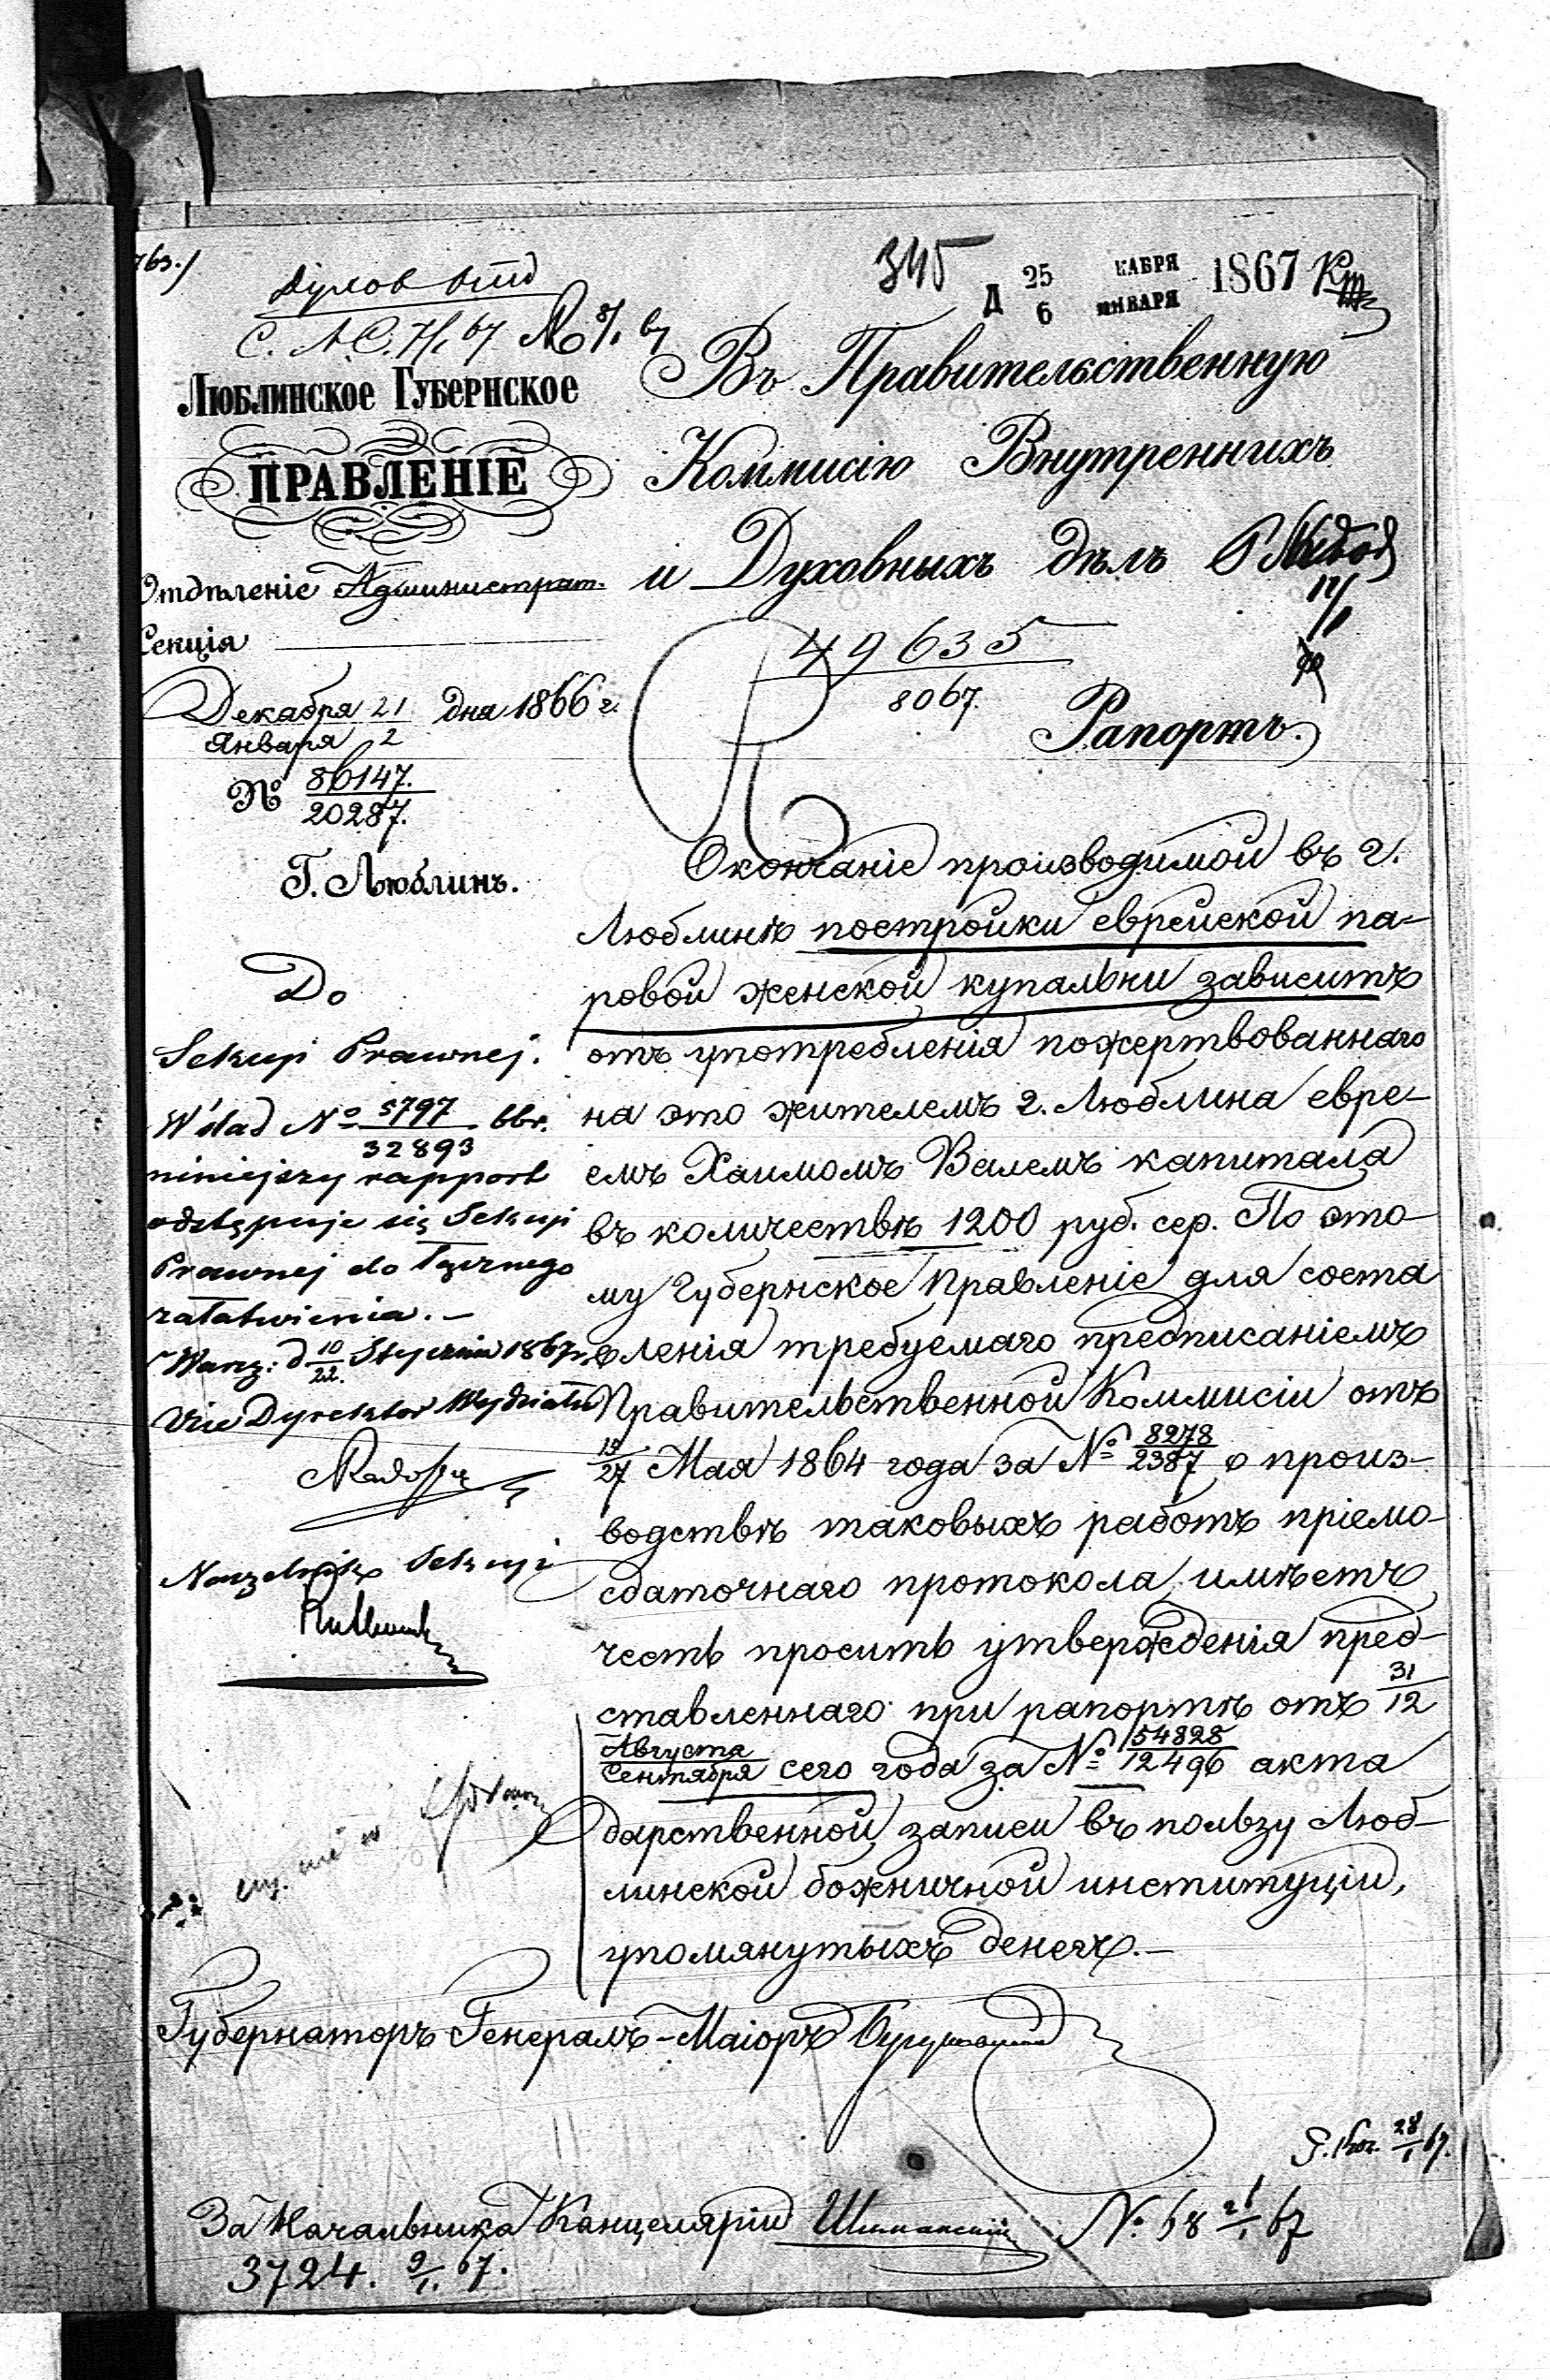 345
25 КАБРЯ
6 ЯНВАРЯ 1867
ЛЮБЛИНСКОЕ ГУБЕРНСКОЕ
ПРАВЛЕНІЕ
Отдѣленіе Администрат.
Секція
Декабря 21 дня 1866 г.
Января 2
№ 86147.
20287.
Г. Люблинъ.
Въ Правительственную
Коммисію Внутреннихъ
и Духовныхъ дѣлъ
49635
8067.
Рапортъ.
Окончаніе производимой въ г.
Люблинѣ постройки еврейской па-
ровой женской купальни зависитъ
отъ употребленія пожертвованнаго
на это жителемъ г. Люблина евре-
емъ Хаимомъ Вейлемъ капитала
въ количествѣ 1200 руб. сер. По это-
му Губернское Правленіе для соста
вленія требуемаго предписаніемъ
Правительственной Коммисіи отъ
15/27 Мая 1864 года за № 8278/2387 о произ-
водствѣ таковыхъ работъ пріемо-
сдаточнаго протокола, имѣетъ
честь просить утвержденія пред-
ставленнаго при рапортѣ отъ 31/12
Августа/Сентября сего года за № 54828/12496 акта
дарственной записи въ пользу Люб-
линской божничной институціи,
упомянутыхъ денегъ.—
Do
Sekcyi Prawnej.
W ślad No 5797/32893 bbr.
niniejszy rapport
odstępuje się Sekcyi
Prawnej do łącznego
załatwienia.—
Warsz: d 10/22. Stycznia 1867 r.
Vice Dyrektor Wydziału
Naczelnik Sekcyi
Губернаторъ Генералъ-Маіоръ
За Начальника Канцеляріи Шиманскій
3724. 9/1. 67.
№ 68 21/1 67
28/1 67.